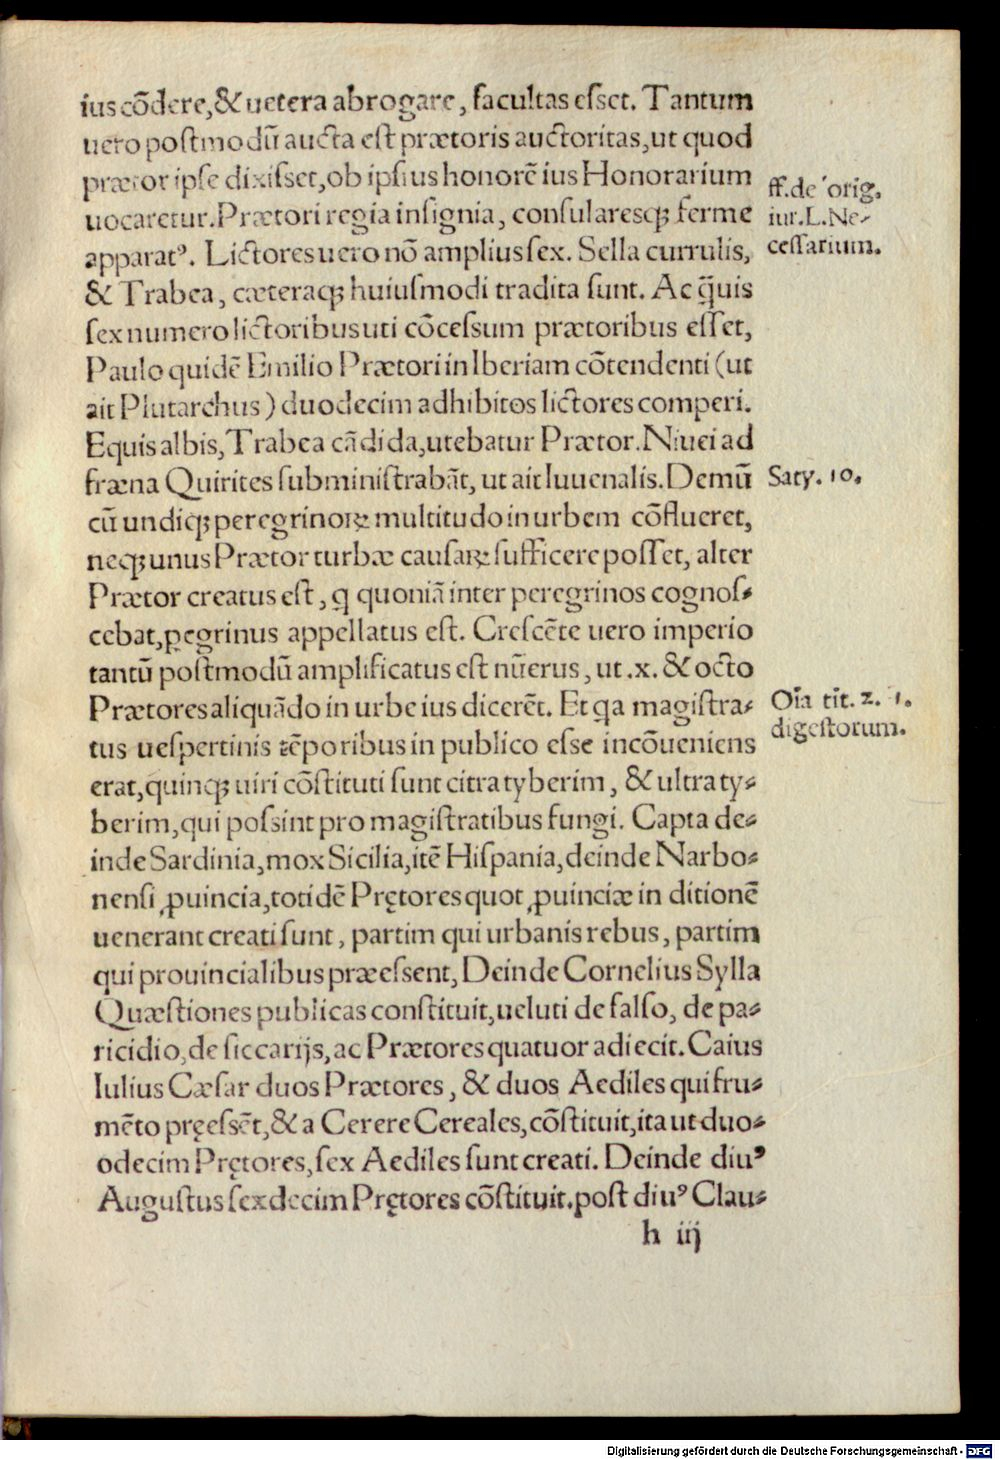 ius cōdere,& uetera abrogare, facultas esset. Tantum
uero postmodū aucta est prætoris auctoritas,ut quod
prætor ipse dixisset,ob ipsius honorē ius Honorarium
uocaretur.Prætori regia insignia, consularesq; ferme
apparatꝰ. Lictores uero nō amplius sex. Sella currulis,
& Trabea, cæteraq; huiusmodi tradita sunt. Ac q̄uis
sex numero lictoribus uti cōcessum prætoribus esset,
Paulo quidē Emilio Prætori in Iberiam cōtendenti (ut
ait Plutarchus) duodecim adhibitos lictores comperi.
Equis albis,Trabea cādida,utebatur Prætor.Niuei ad
fræna Quirites subministrabāt, ut ait Iuuenalis.Demū
cū undiq; peregrinoꝝ multitudo in urbem cōflueret,
neq; unus Prætor turbæ causaꝝ sufficere posset, alter
Prætor creatus est, q quoniā inter peregrinos cognos⸗
cebat,ꝑegrinus appellatus est. Crescēte uero imperio
tantū postmodū amplificatus est nūerus, ut .x. & octo
Prætores aliquādo in urbe ius dicerēt. Et qa magistra⸗
tus uespertinis tēporibus in publico esse incōueniens
erat,quinq; uiri cōstituti sunt citra tyberim, & ultra ty⸗
berim,qui possint pro magistratibus fungi. Capta de⸗
inde Sardinia,mox Sicilia,itē Hispania,deinde Narbo⸗
nensi ꝓuincia,totidē Prętores quot ꝓuinciæ in ditionē
uenerant creati sunt, partim qui urbanis rebus, partim
qui prouincialibus præessent, Deinde Cornelius Sylla
Quæstiones publicas constituit,ueluti de falso, de pa⸗
ricidio,de siccarijs,ac Prætores quatuor adiecit.Caius
Iulius Cæsar duos Prætores, & duos Aediles qui fru⸗
mēto pręessēt,& a Cerere Cereales,cōstituit,ita ut duo⸗
odecim Prętores,sex Aediles sunt creati. Deinde diuꝰ
Augustus sexdecim Prętores cōstituit.post diuꝰ Clau⸗
h iij
ff.de orig.
iur.L.Ne⸗
cessarium.
Saty. 10.
Oīa tit. 2. 1.
digestorum.
Digitalisierung gefördert durch die Deutsche Forschungsgemeinschaft - DFG